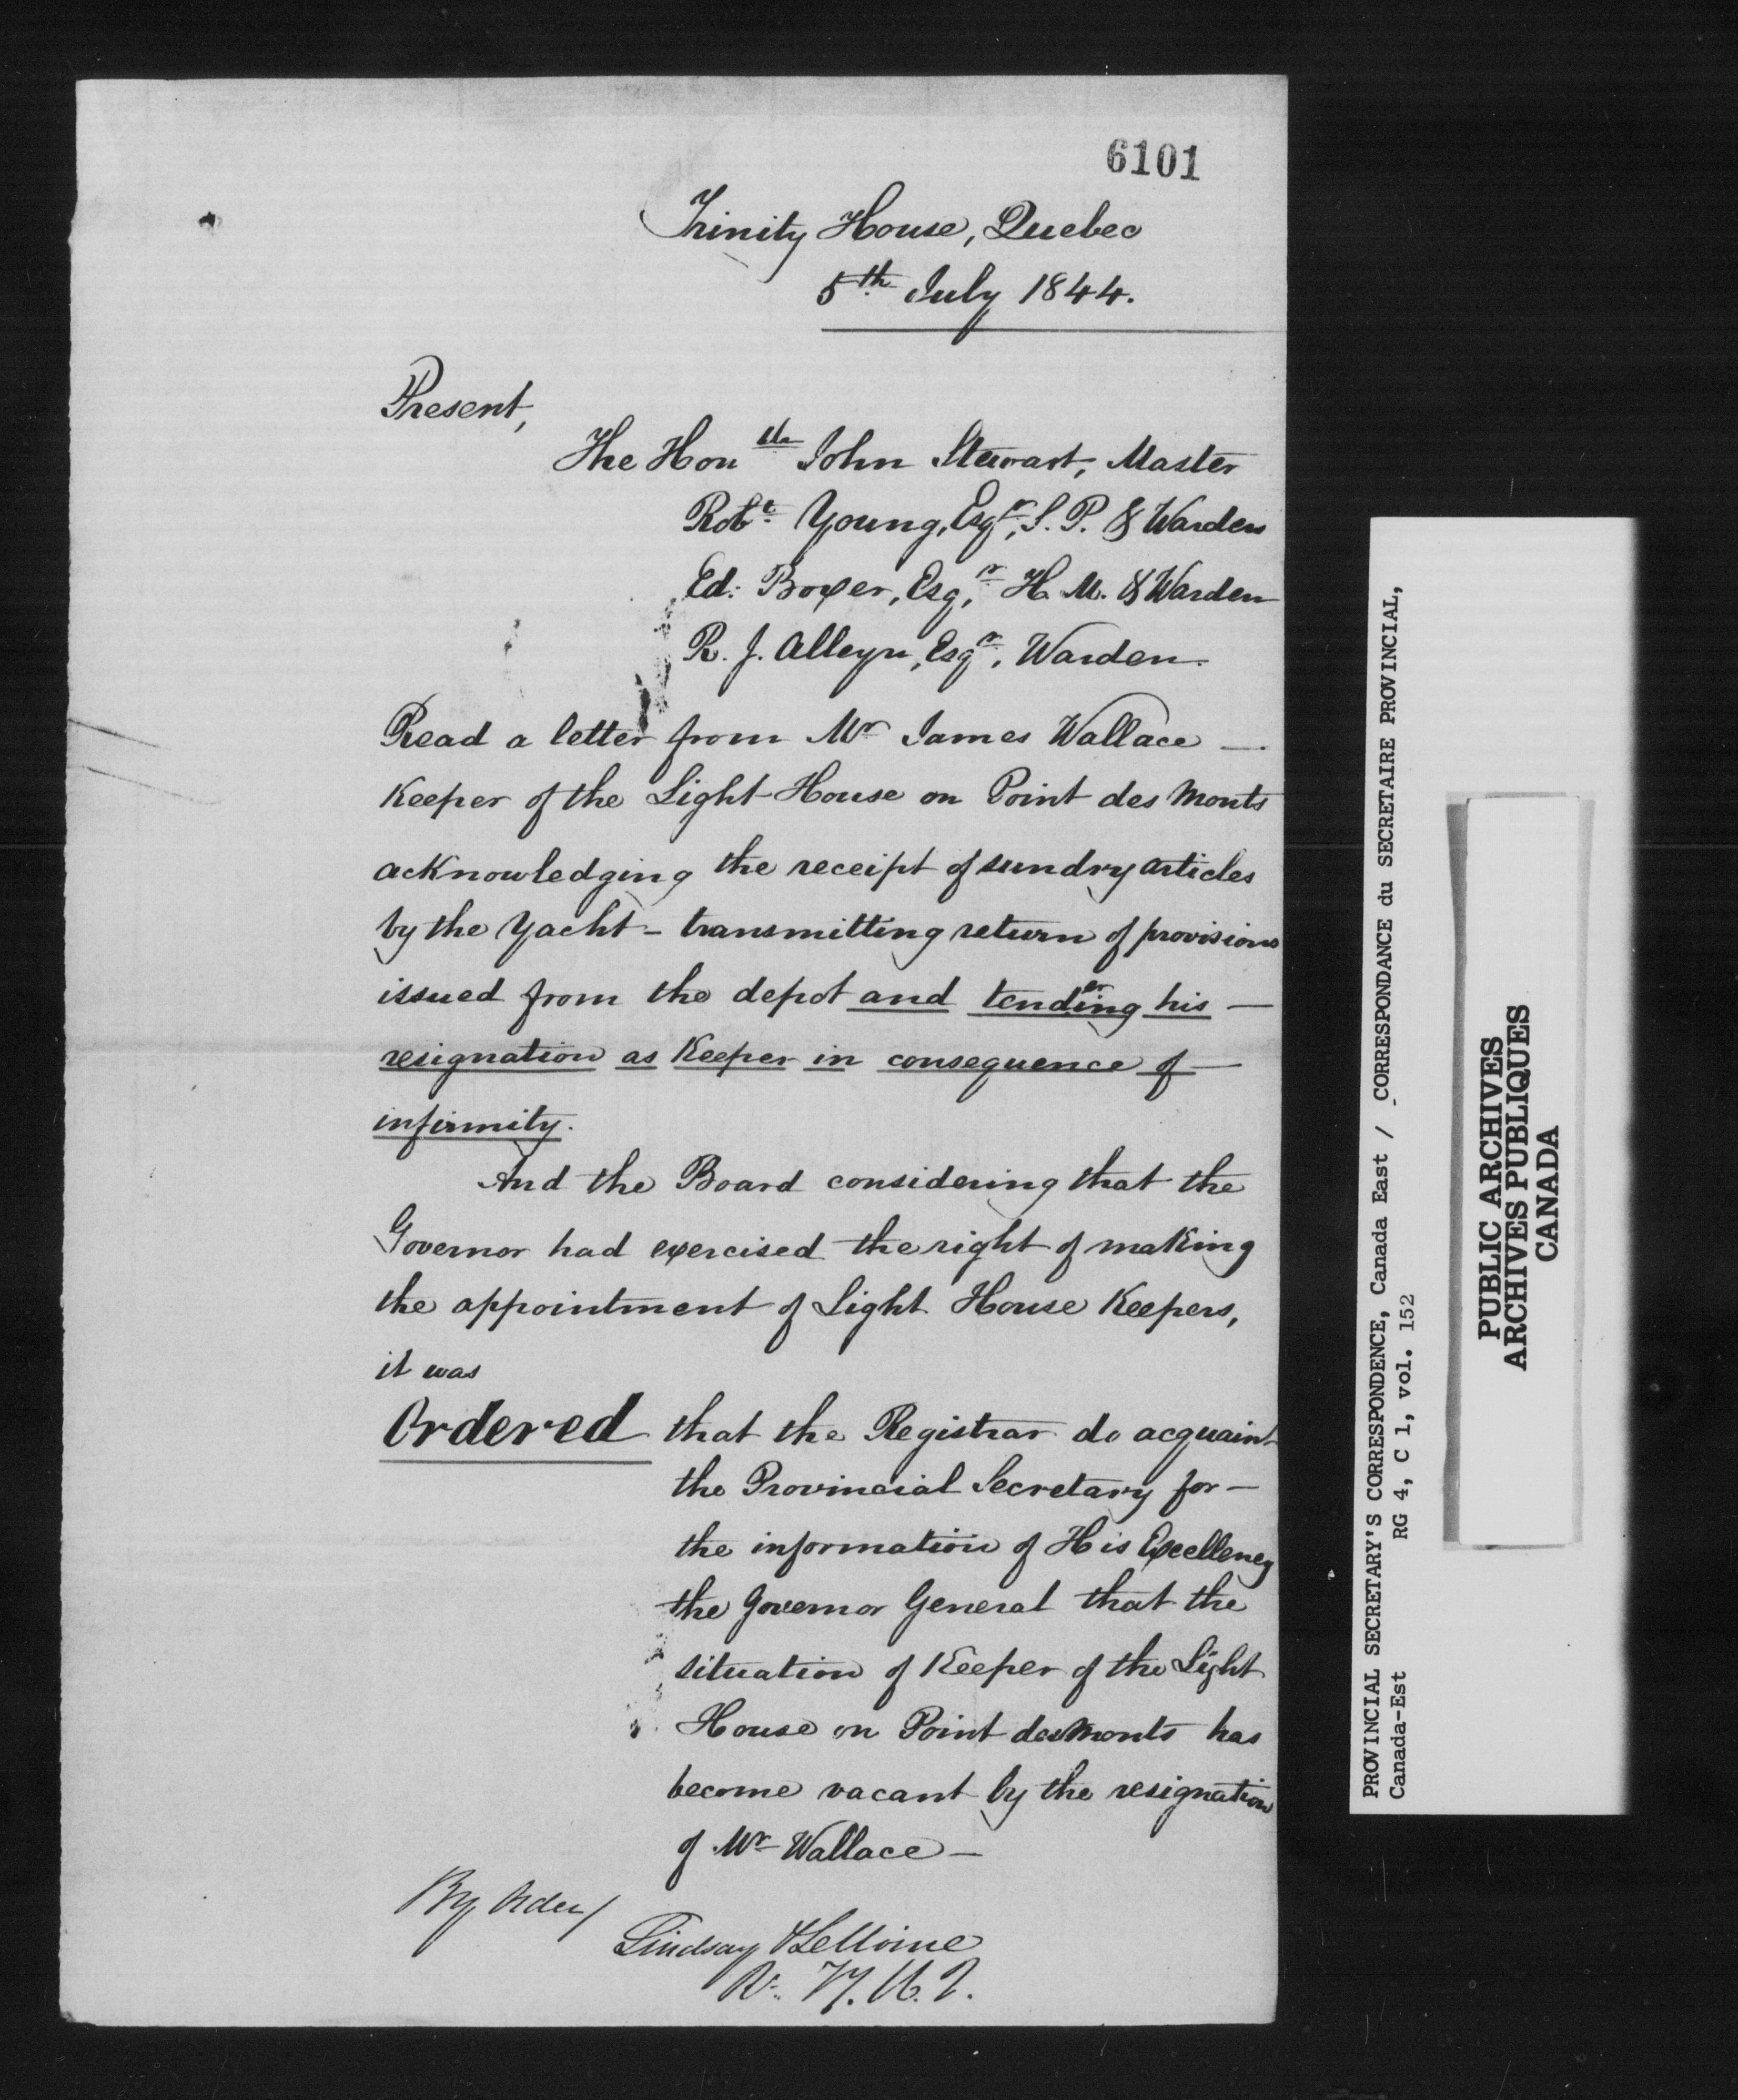 6101
Trinity House, Quebec
5th July 1844.
Present,
The Honble John Stewart, Master
Robt Young, Esqr, S. P. & Warden
Ed: Boxer, Esqr, H. M. & Warden
R. J. Alleyn, Esqr, Warden.
Read a letter from Mr James Wallace —
Keeper of the Light-House on Point des Monts
acknowledging the receipt of sundry articles
by the Yacht - transmitting return of provisions
issued from the depot and tendering his —
resignation as Keeper in consequence of —
infirmity.
And the Board considering that the
Governor had exercised the right of making
the appointment of Light House Keepers,
it was
Ordered that the Registrar do acquaint
the Provincial Secretary for —
the information of His Excellency
the Governor General that the
situation of Keeper of the Light
House on Point des Monts has
become vacant by the resignation
of Mr Wallace —
By Order/
Lindsay & LeMoine
PROVINCIAL SECRETARY'S CORRESPONDENCE, Canada East / CORRESPONDANCE du SECRETAIRE PROVINCIAL,
Canada-Est RG 4, C 1, vol. 152
PUBLIC ARCHIVES
ARCHIVES PUBLIQUES
CANADA